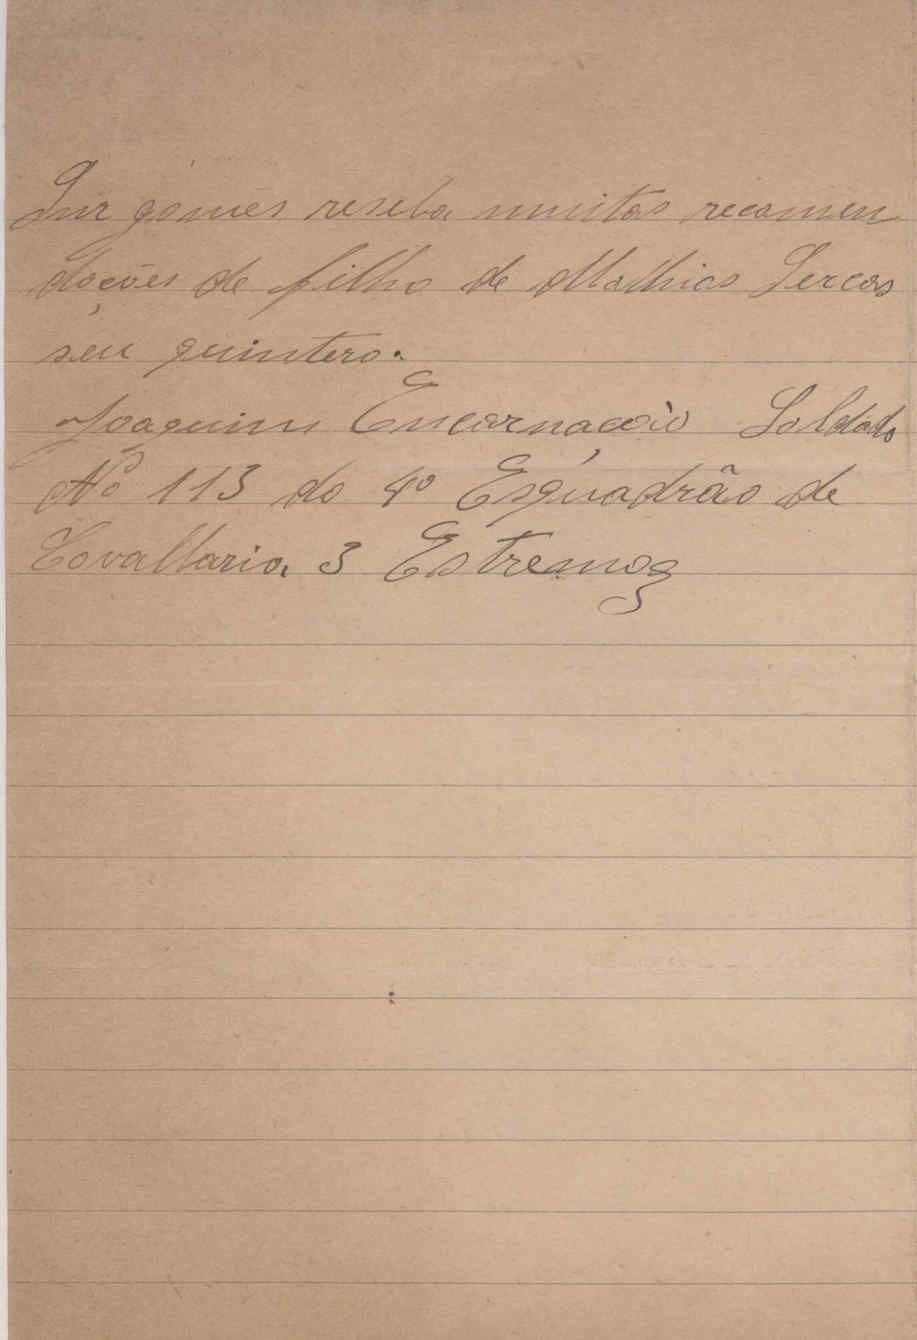 Snr gomes reseba muitas recomen
dações de filho de Mathias Sercas
seu quintero.
Joaquim Encarnação Soldado
Nº 113 do 4º Esquadrão de
Cavallaria 3 Estremoz